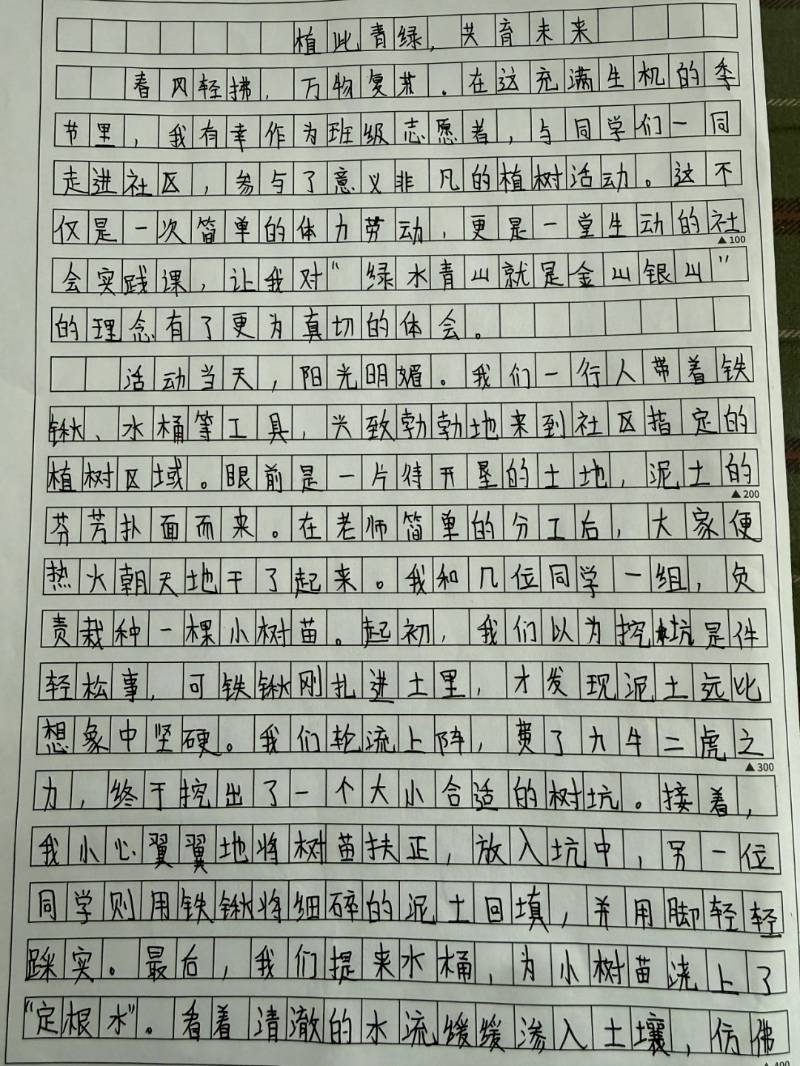 植此青绿，共育未来
春风轻拂，万物复苏。在这充满生机的季
节里，我有幸作为班级志愿者，与同学们一同
走进社区，参与了意义非凡的植树活动。这不
仅是一次简单的体力劳动，更是一堂生动的社
▲100
会实践课，让我对“绿水青山就是金山银山”
的理念有了更为真切的体会。
活动当天，阳光明媚。我们一行人带着铁
锹、水桶等工具，兴致勃勃地来到社区指定的
植树区域。眼前是一片待开垦的土地，泥土的
▲200
芬芳扑面而来。在老师简单的分工后，大家便
热火朝天地干了起来。我和几位同学一组，负
责栽种一棵小树苗。起初，我们以为挖坑是件
轻松事，可铁锹刚扎进土里，才发现泥土远比
想象中坚硬。我们轮流上阵，费了九牛二虎之
▲300
力，终于挖出了一个大小合适的树坑。接着，
我小心翼翼地将树苗扶正，放入坑中，另一位
同学则用铁锹将细碎的泥土回填，并用脚轻轻
踩实。最后，我们提来水桶，为小树苗浇上了
“定根水”。看着清澈的水流缓缓渗入土壤，仿佛
▲400